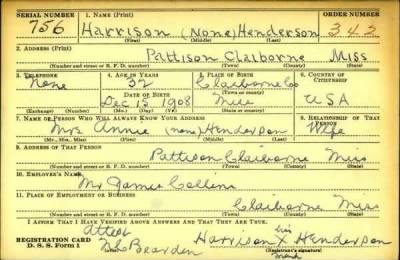 SERIAL NUMBER 1. NAME (Print) ORDER NUMBER
756 Harrison (None) Henderson 342
(First) (Middle) (Last)
2. ADDRESS (Print)
Pattison Claiborne Miss
(Number and street or R. F. D. number) (Town) (County) (State)
3. TELEPHONE 4. AGE IN YEARS 5. PLACE OF BIRTH 6. COUNTRY OF CITIZENSHIP
None 32 Claiborne Co
DATE OF BIRTH (Town or county)
Dec 15 1908 Miss USA
(Exchange) (Number) (Mo.) (Day) (Yr.) (State or country)
7. NAME OF PERSON WHO WILL ALWAYS KNOW YOUR ADDRESS 8. RELATIONSHIP OF THAT PERSON
Mrs Annie (non) Henderson Wife
(Mr., Mrs., Miss) (First) (Middle) (Last)
9. ADDRESS OF THAT PERSON
Pattison Claiborne Miss
(Number and street or R. F. D. number) (Town) (County) (State)
10. EMPLOYER'S NAME
Mr James Collins
11. PLACE OF EMPLOYMENT OR BUSINESS
Claiborne Miss
(Number and street or R. F. D. number) (Town) (County) (State)
I AFFIRM THAT I HAVE VERIFIED ABOVE ANSWERS AND THAT THEY ARE TRUE.
Attest his
REGISTRATION CARD Bearden Harrison X Henderson
D. S. S. Form 1 (Registrant's signature) mark